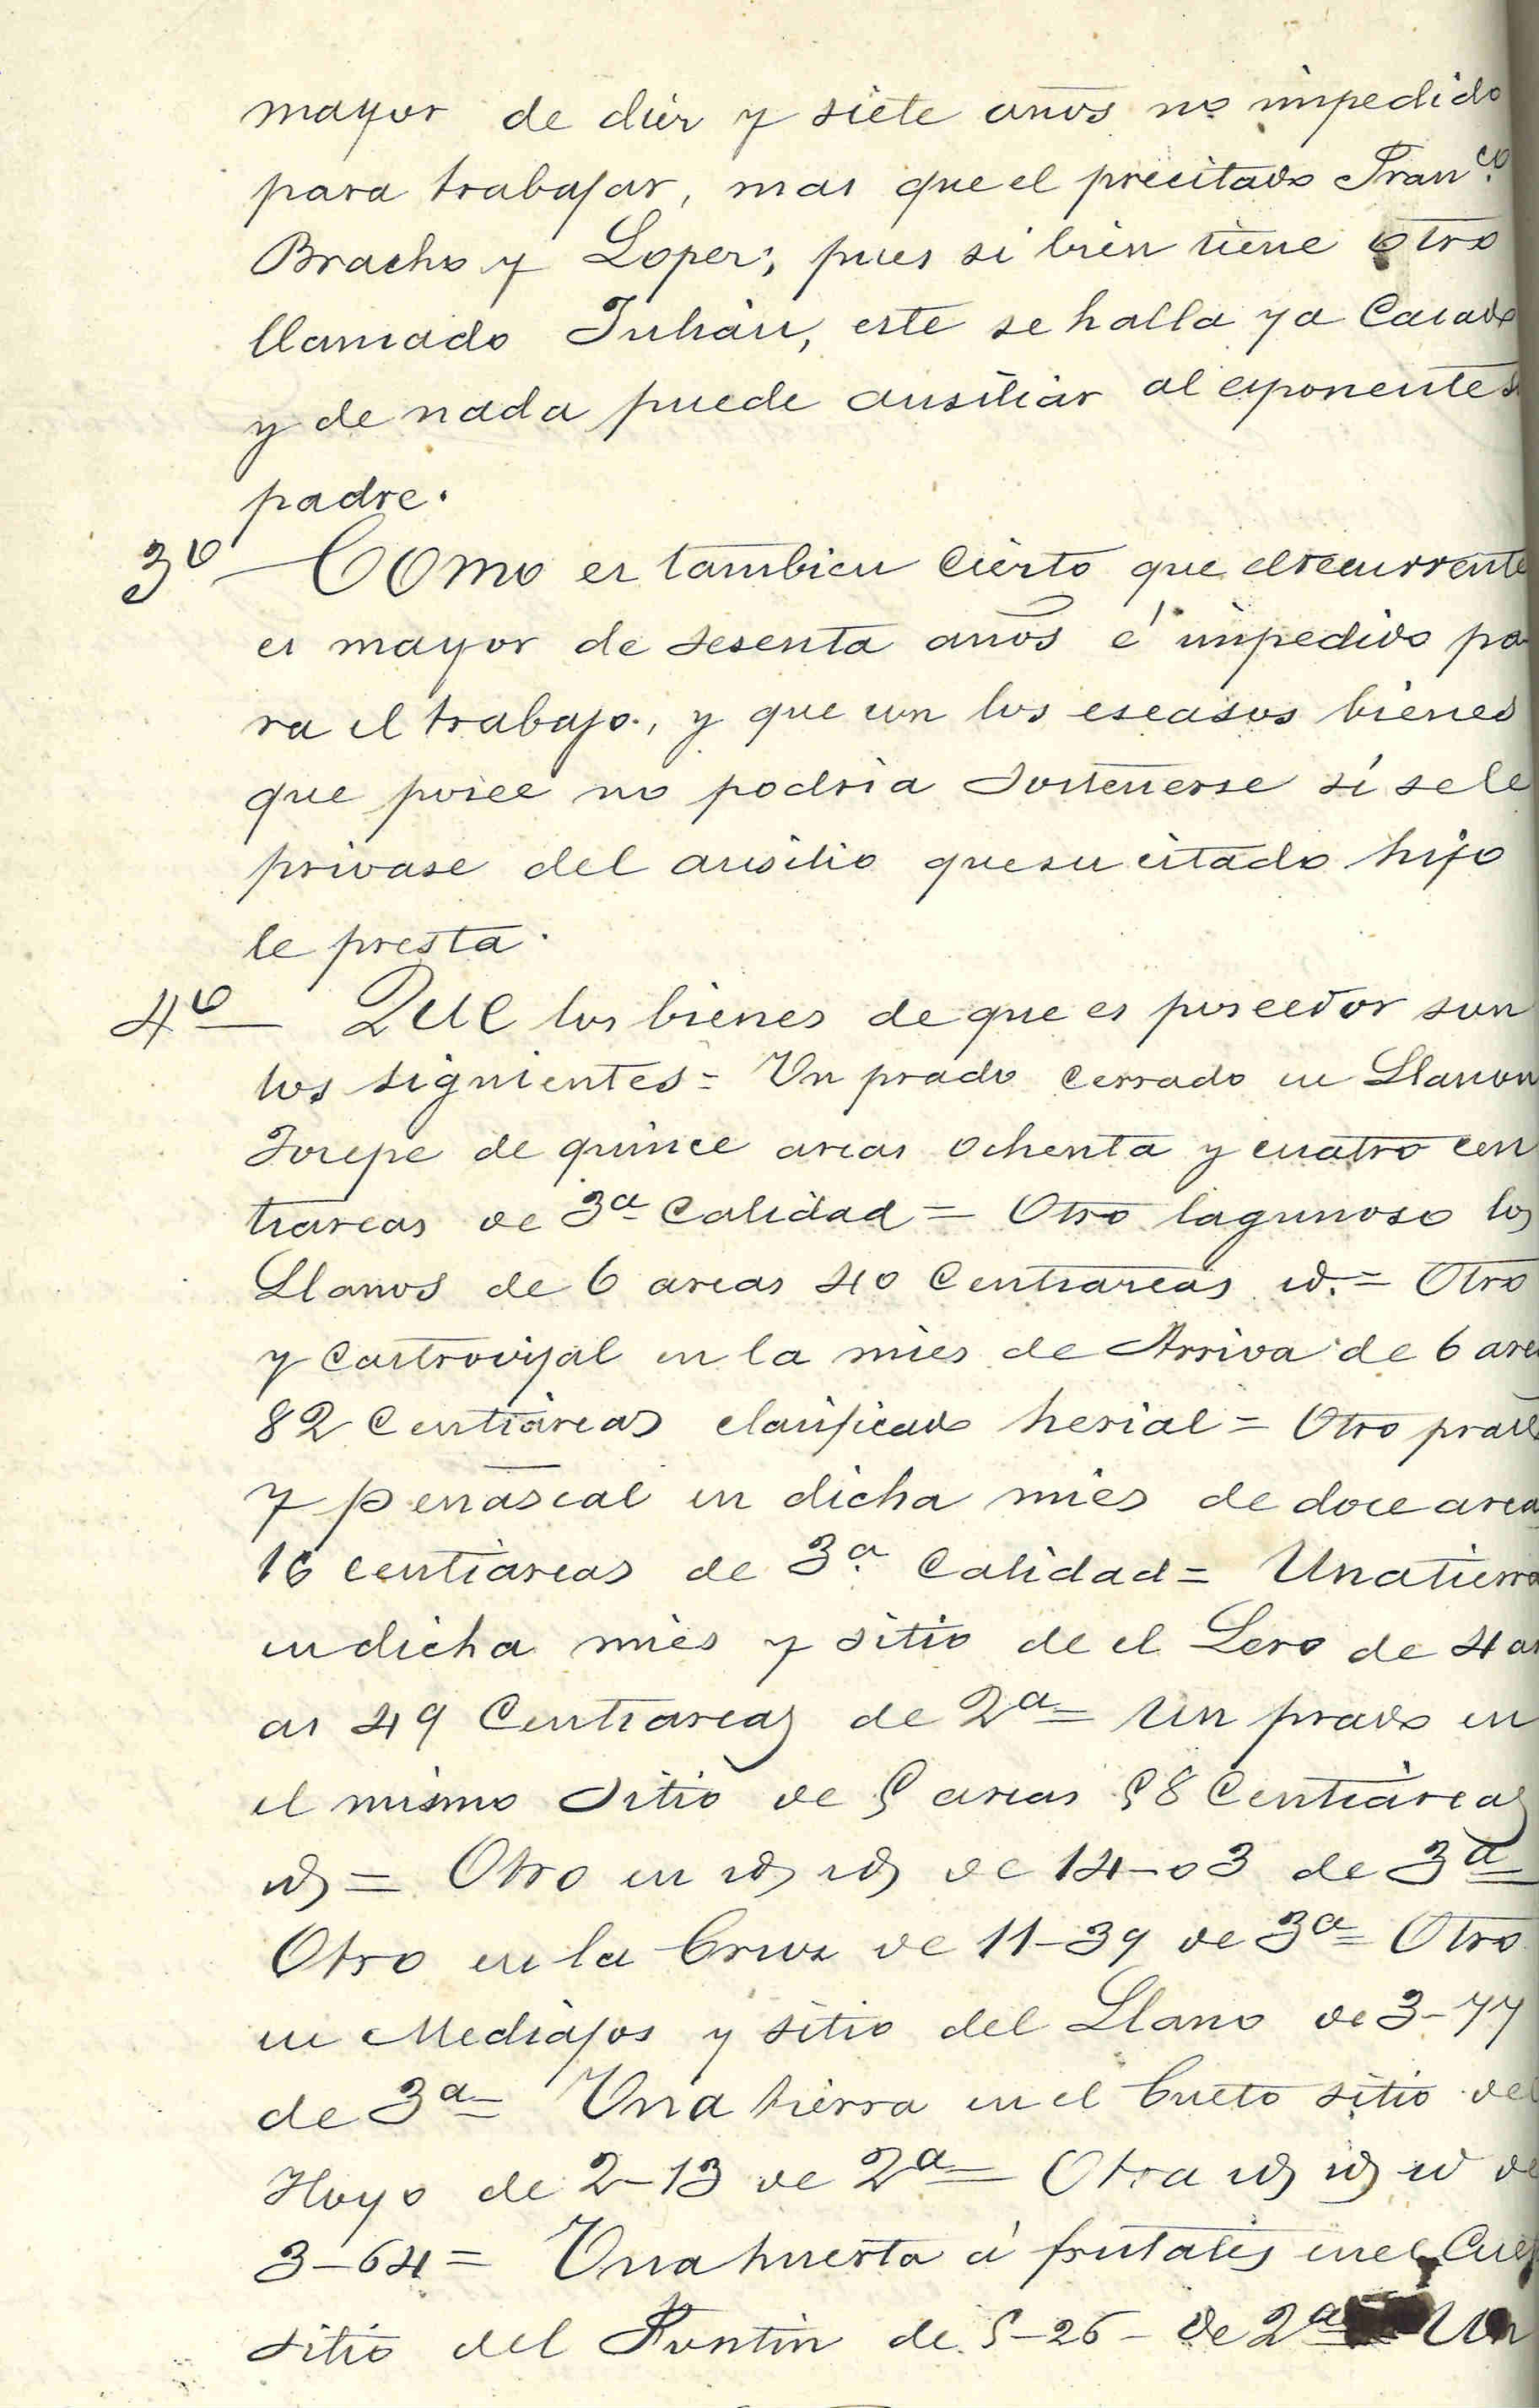 mayor de diez y siete años no impedido
para trabajar, mas que el precitado Fran.co
Bracho y Lopez; pues si bien tiene otro
llamado Julián, este se halla ya casado
y de nada puede ausiliar al esponente su
padre.
3º Como es tambien cierto que el recurrente
es mayor de sesenta años é impedido pa
ra el trabajo, y que con los escasos bienes
que posee no podria sostenerse si se le
privase del ausilio que su citado hijo
le presta.
4º Que los bienes de que es poseedor son
los siguientes = Un prado cerrado en
de quince areas ochenta y cuatro cen
tiareas de 3ª calidad = Otro lagunoso los
Llanos de 6 areas 40 Centiareas id. = Otro
y Castrovijal en la mies de Arriva de 6 area
82 Centiáreas clasificado herial = Otro prado
y peñascal en dicha mies de doce area
16 centiareas de 3ª Calidad = Una tierra
en dicha mies y sitio de el Lero de 4 ar
as 49 Centiareas de 2ª = Un prado en
el mismo sitio de 5 areas 58 Centiáreas
id = Otro en id id de 14-03 de 3ª =
Otro en la Cruz de 11-39 de 3ª = Otro
en Mediajos y sitio del Llano de 3-77
de 3ª = Una tierra en el Cueto sitio del
Hoyo de 2-13 de 2ª = Otra id id id de
3-64 = Una huerta á frutales en el Cue
sitio del Puntin de 5-26 - de 2ª Un